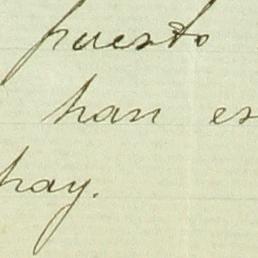 puesto
han es
hay.